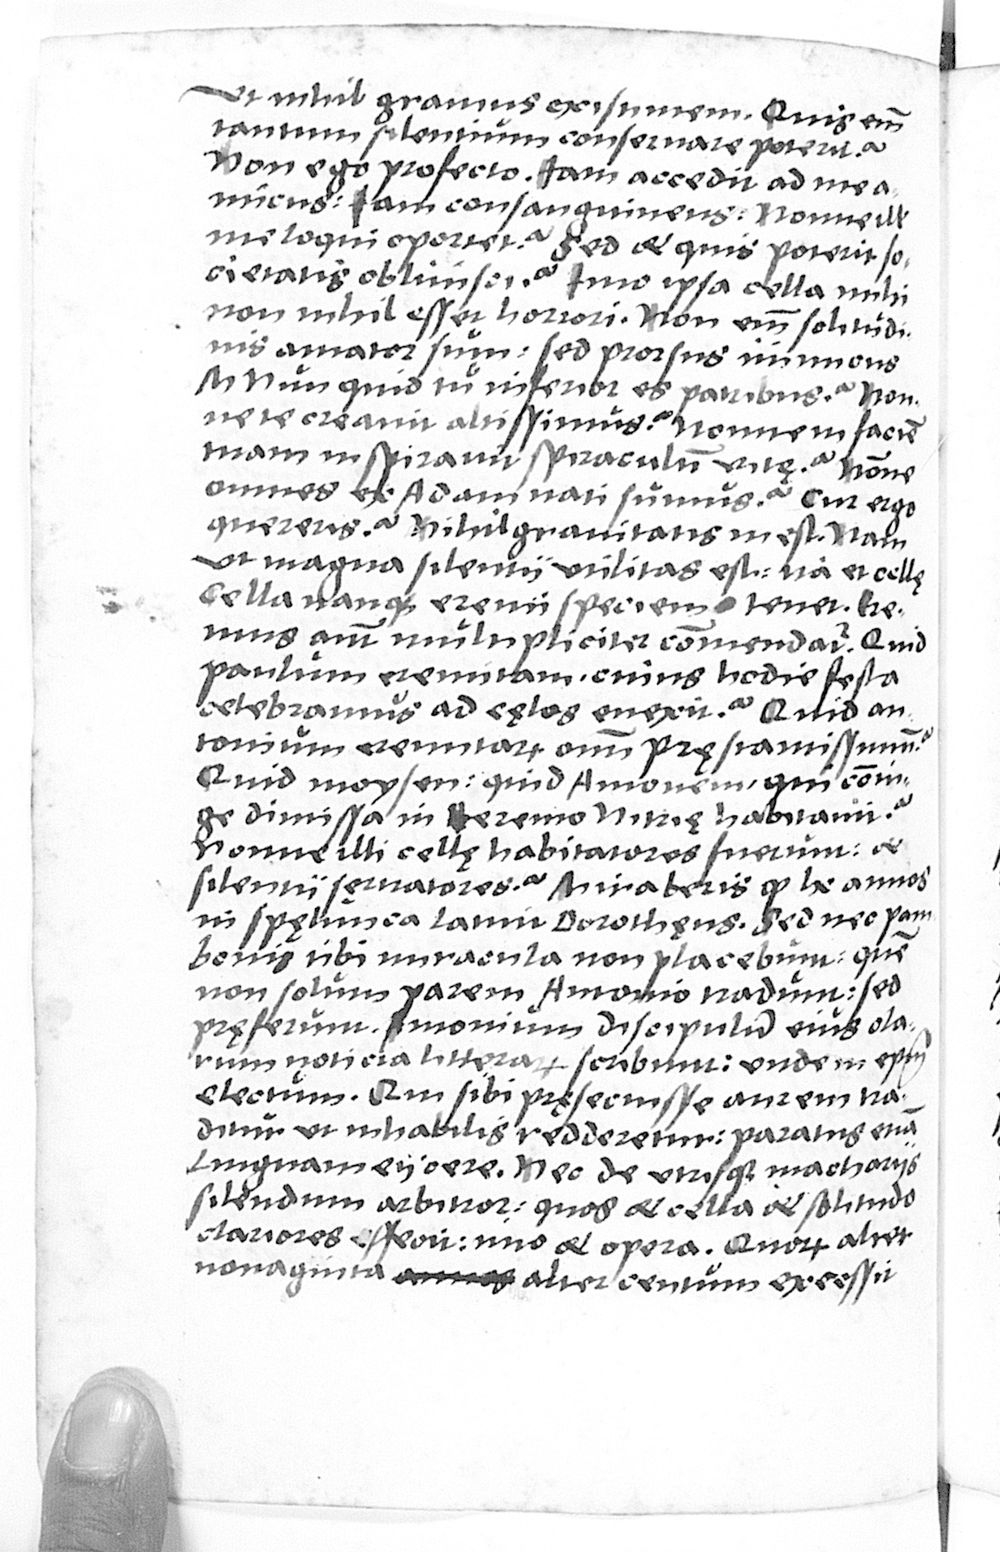 Vt nihil grauius existimem. Quis em̃
tantum silentium conseruare poterit?
Non ego profecto. Iam accedit ad me a-
micus: Iam consanguineus: Nonne ill'
me loqui oportet? Sed & quis poterit so-
cietatis obliuisci? Imo ipsa cella mihi
non nihil esset horrori. Non em̃ solitudi-
nis amator sum: sed prorsus immo
M Nunquid tu inferior es patribus? Non-
ne te creauit altissimus? Nonne in faciẽ
tuam inspirauit spiraculũ vitę? Nõne
omnes ex Adam nati sumus? Cur ergo
quereris? Nihil grauitatis inest. Nam
vt magna silentij vtilitas est: ita et cellę
Cella nanq; eremi speciem tenet. Ere-
mus aut̃ multipliciter cõmendat̃. Quid
paulum eremitam, cuius hodie festa
celebramus ad cęlos euexit? Quid an-
tonium eremitaꝝ om̃ pręstantissimũ?
Quid moysen: quid Amonem, qui cõiu-
ge dimissa in heremo Nitrię habitauit?
Nonne illi cellę habitatores fuerunt: &
silentij seruatores? Miraberis ꝙ lx annos
in spęlunca latuit Dorothęus. Sed nec pam-
bonis tibi miracula non placebunt: quẽ
non solum parem Antonio tradunt: sed
pręferunt. Amonium discipulũ eius cla-
rum noticia litteraꝝ scribunt: vnde in ep̃m
electum. Qui sibi pręsecuisse aurem tra-
ditur vt inhabilis redderetur: paratus etiã
Linguam eijcere. Nec de vtrisq; machariis
silendum arbitror: quos & cella & solitudo
clariores effecit: imo & opera. Quoꝝ alter
nonaginta alter centum excessit